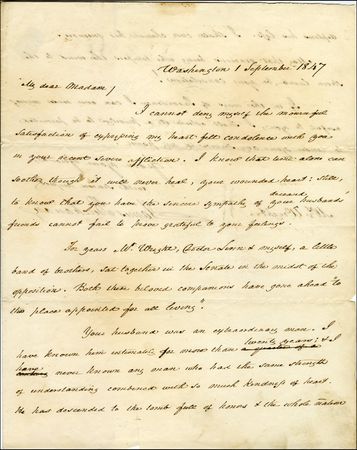 Washington 1 September 1847
My dear Madam,
I cannot deny myself the mournful
satisfaction of expressing my heart felt condolence with you
in your recent severe affliction. I know that time alone can
soothe, though it will never heal, your wounded heart: still,
to know that you have the sincere sympathy of your deceased husbands'
friends cannot fail to prove grateful to your feelings.
For years Mr. Wright, Doctor Linn & myself, a little
band of brothers, sat together in the Senate in the midst of the
opposition. Both these beloved companions have gone ahead "to
the place appointed for all living".
Your husband was an extraordinary man. I
have known him intimately for more than twenty years; & I
have never known any man who had the same strength
of understanding combined with so much kindness of heart.
He has descended to the tomb full of honors & the whole nation